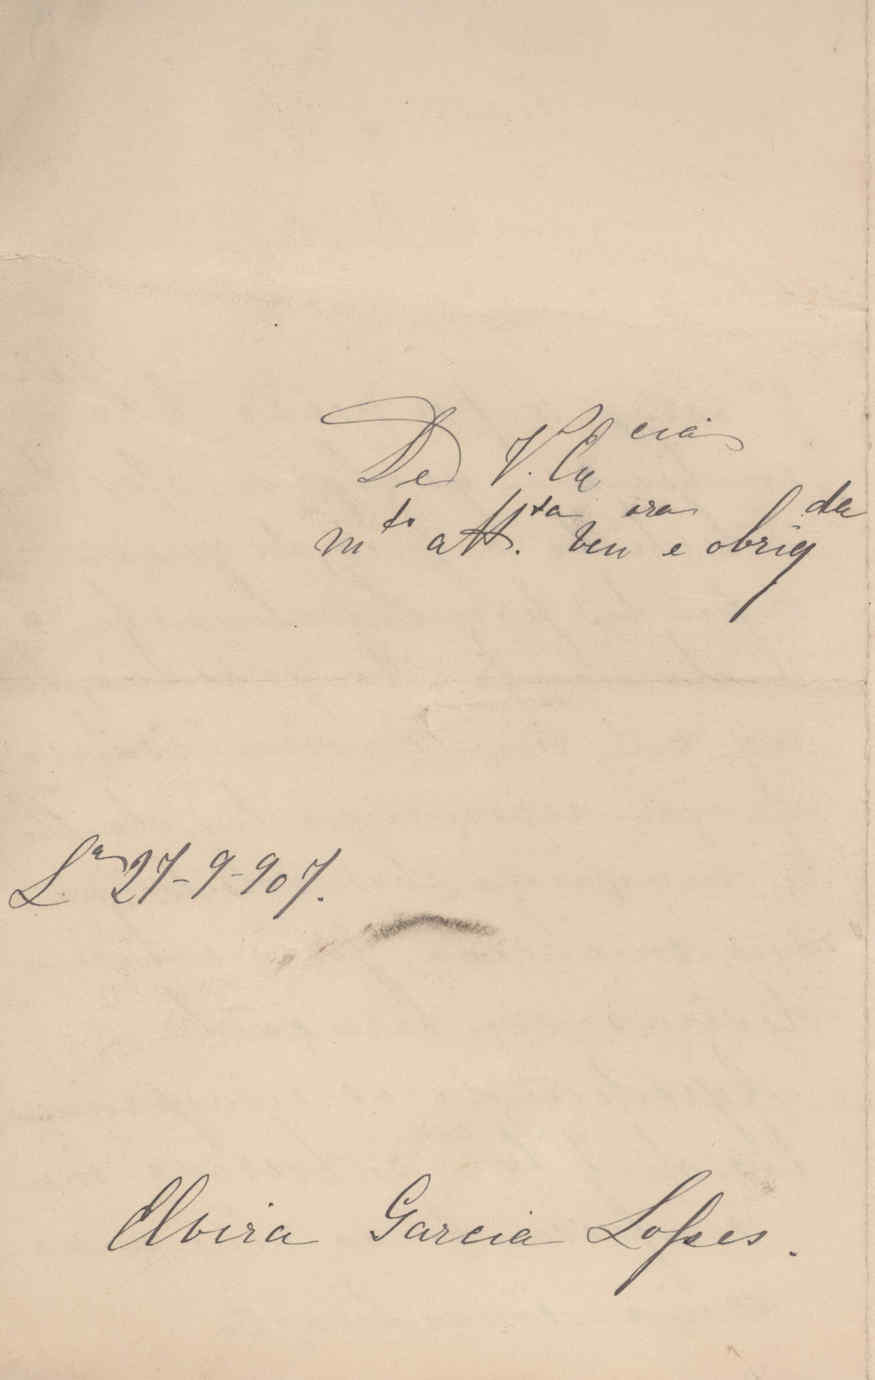 De V. Ex cia
m to att ta. ven ora e obrig da
L.a 27-9-907.
Elvira Garcia Lopes.